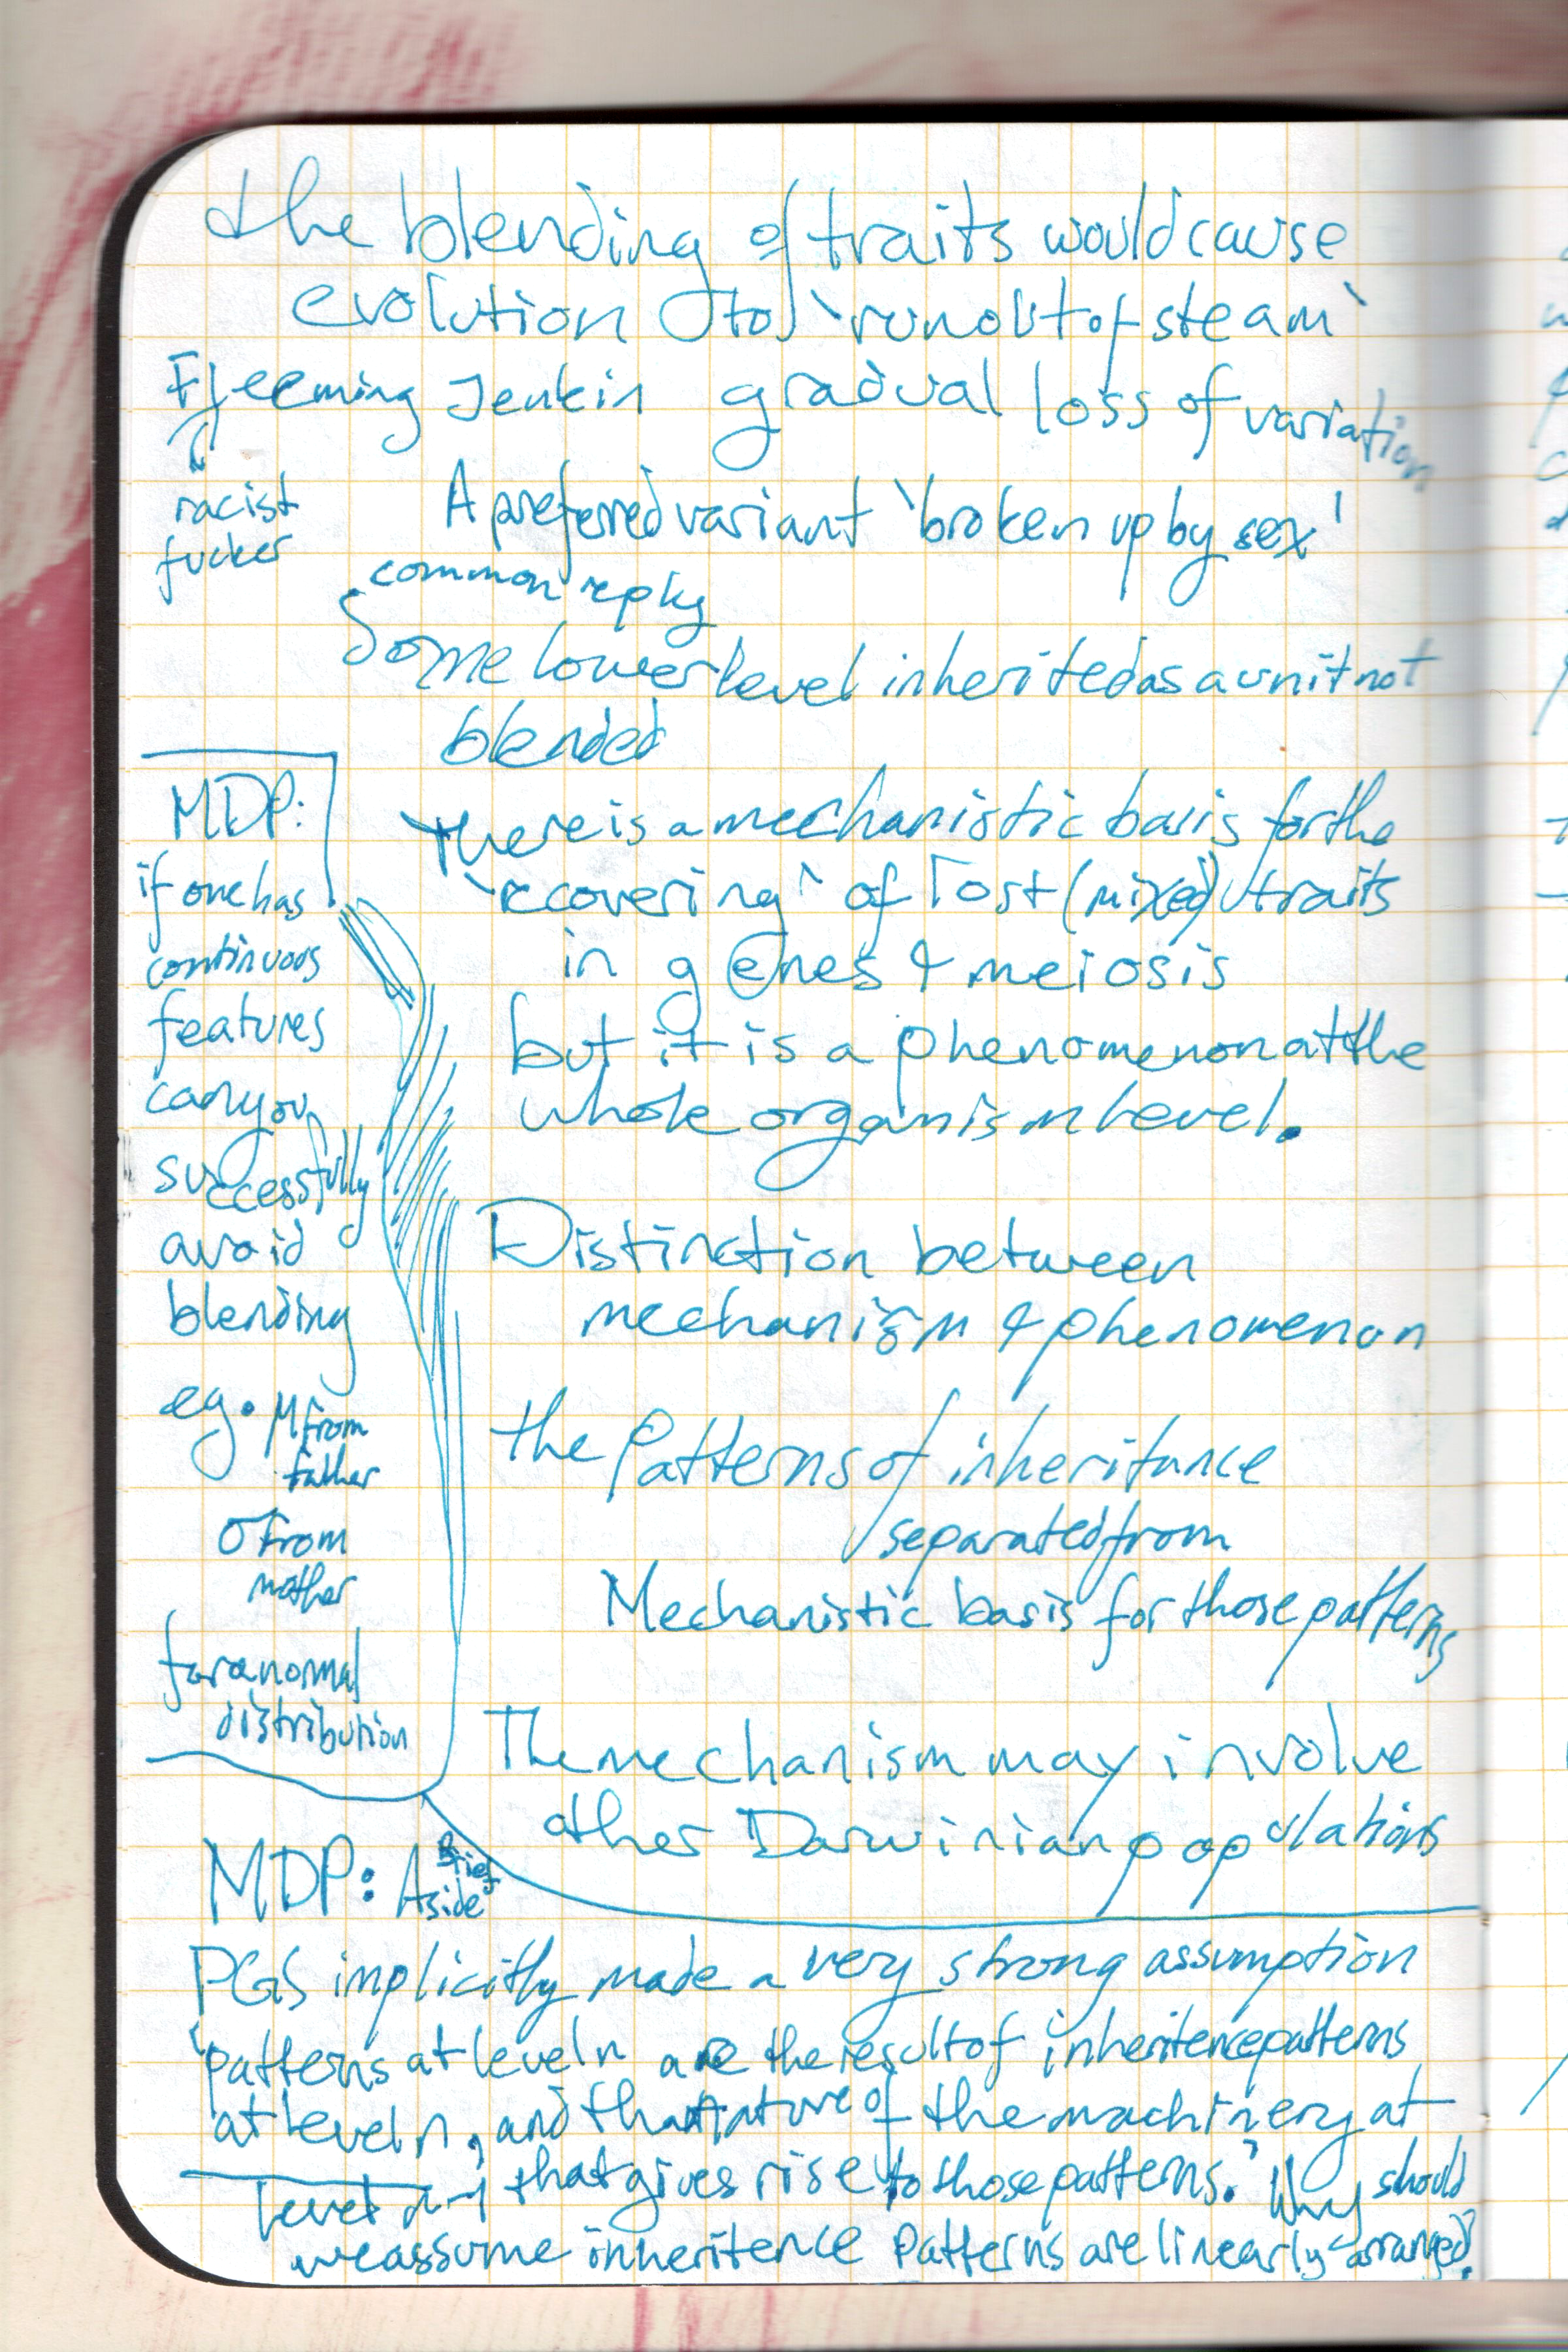 the blending of traits would cause
evolution to 'run out of steam'
Fleeming Jenkin gradual loss of variation
racist
fucker
A preferred variant 'broken up by sex'
common reply
Some lower level inherited as a unit not
blended
there is a mechanistic basis for the
'recovering' of lost (mixed) traits
in genes & meiosis
but it is a phenomenon at the
whole organism level.
Distinction between
mechanism & phenomenon
the patterns of inheritance
separated from
Mechanistic basis for those patterns
The mechanism may involve
other Darwinian populations
MDP:
if one has
continuous
features
can you
successfully
avoid
blending
eg. μ from
father
σ from
mother
for a normal
distribution
MDP: A Brief
Aside
PGS implicitly made a very strong assumption
'patterns at level n are the result of inheritence patterns
at level n, and that nature of the machinery at
level n-1 that gives rise to those patterns.' Why should
we assume inheritence patterns are linearly arranged?